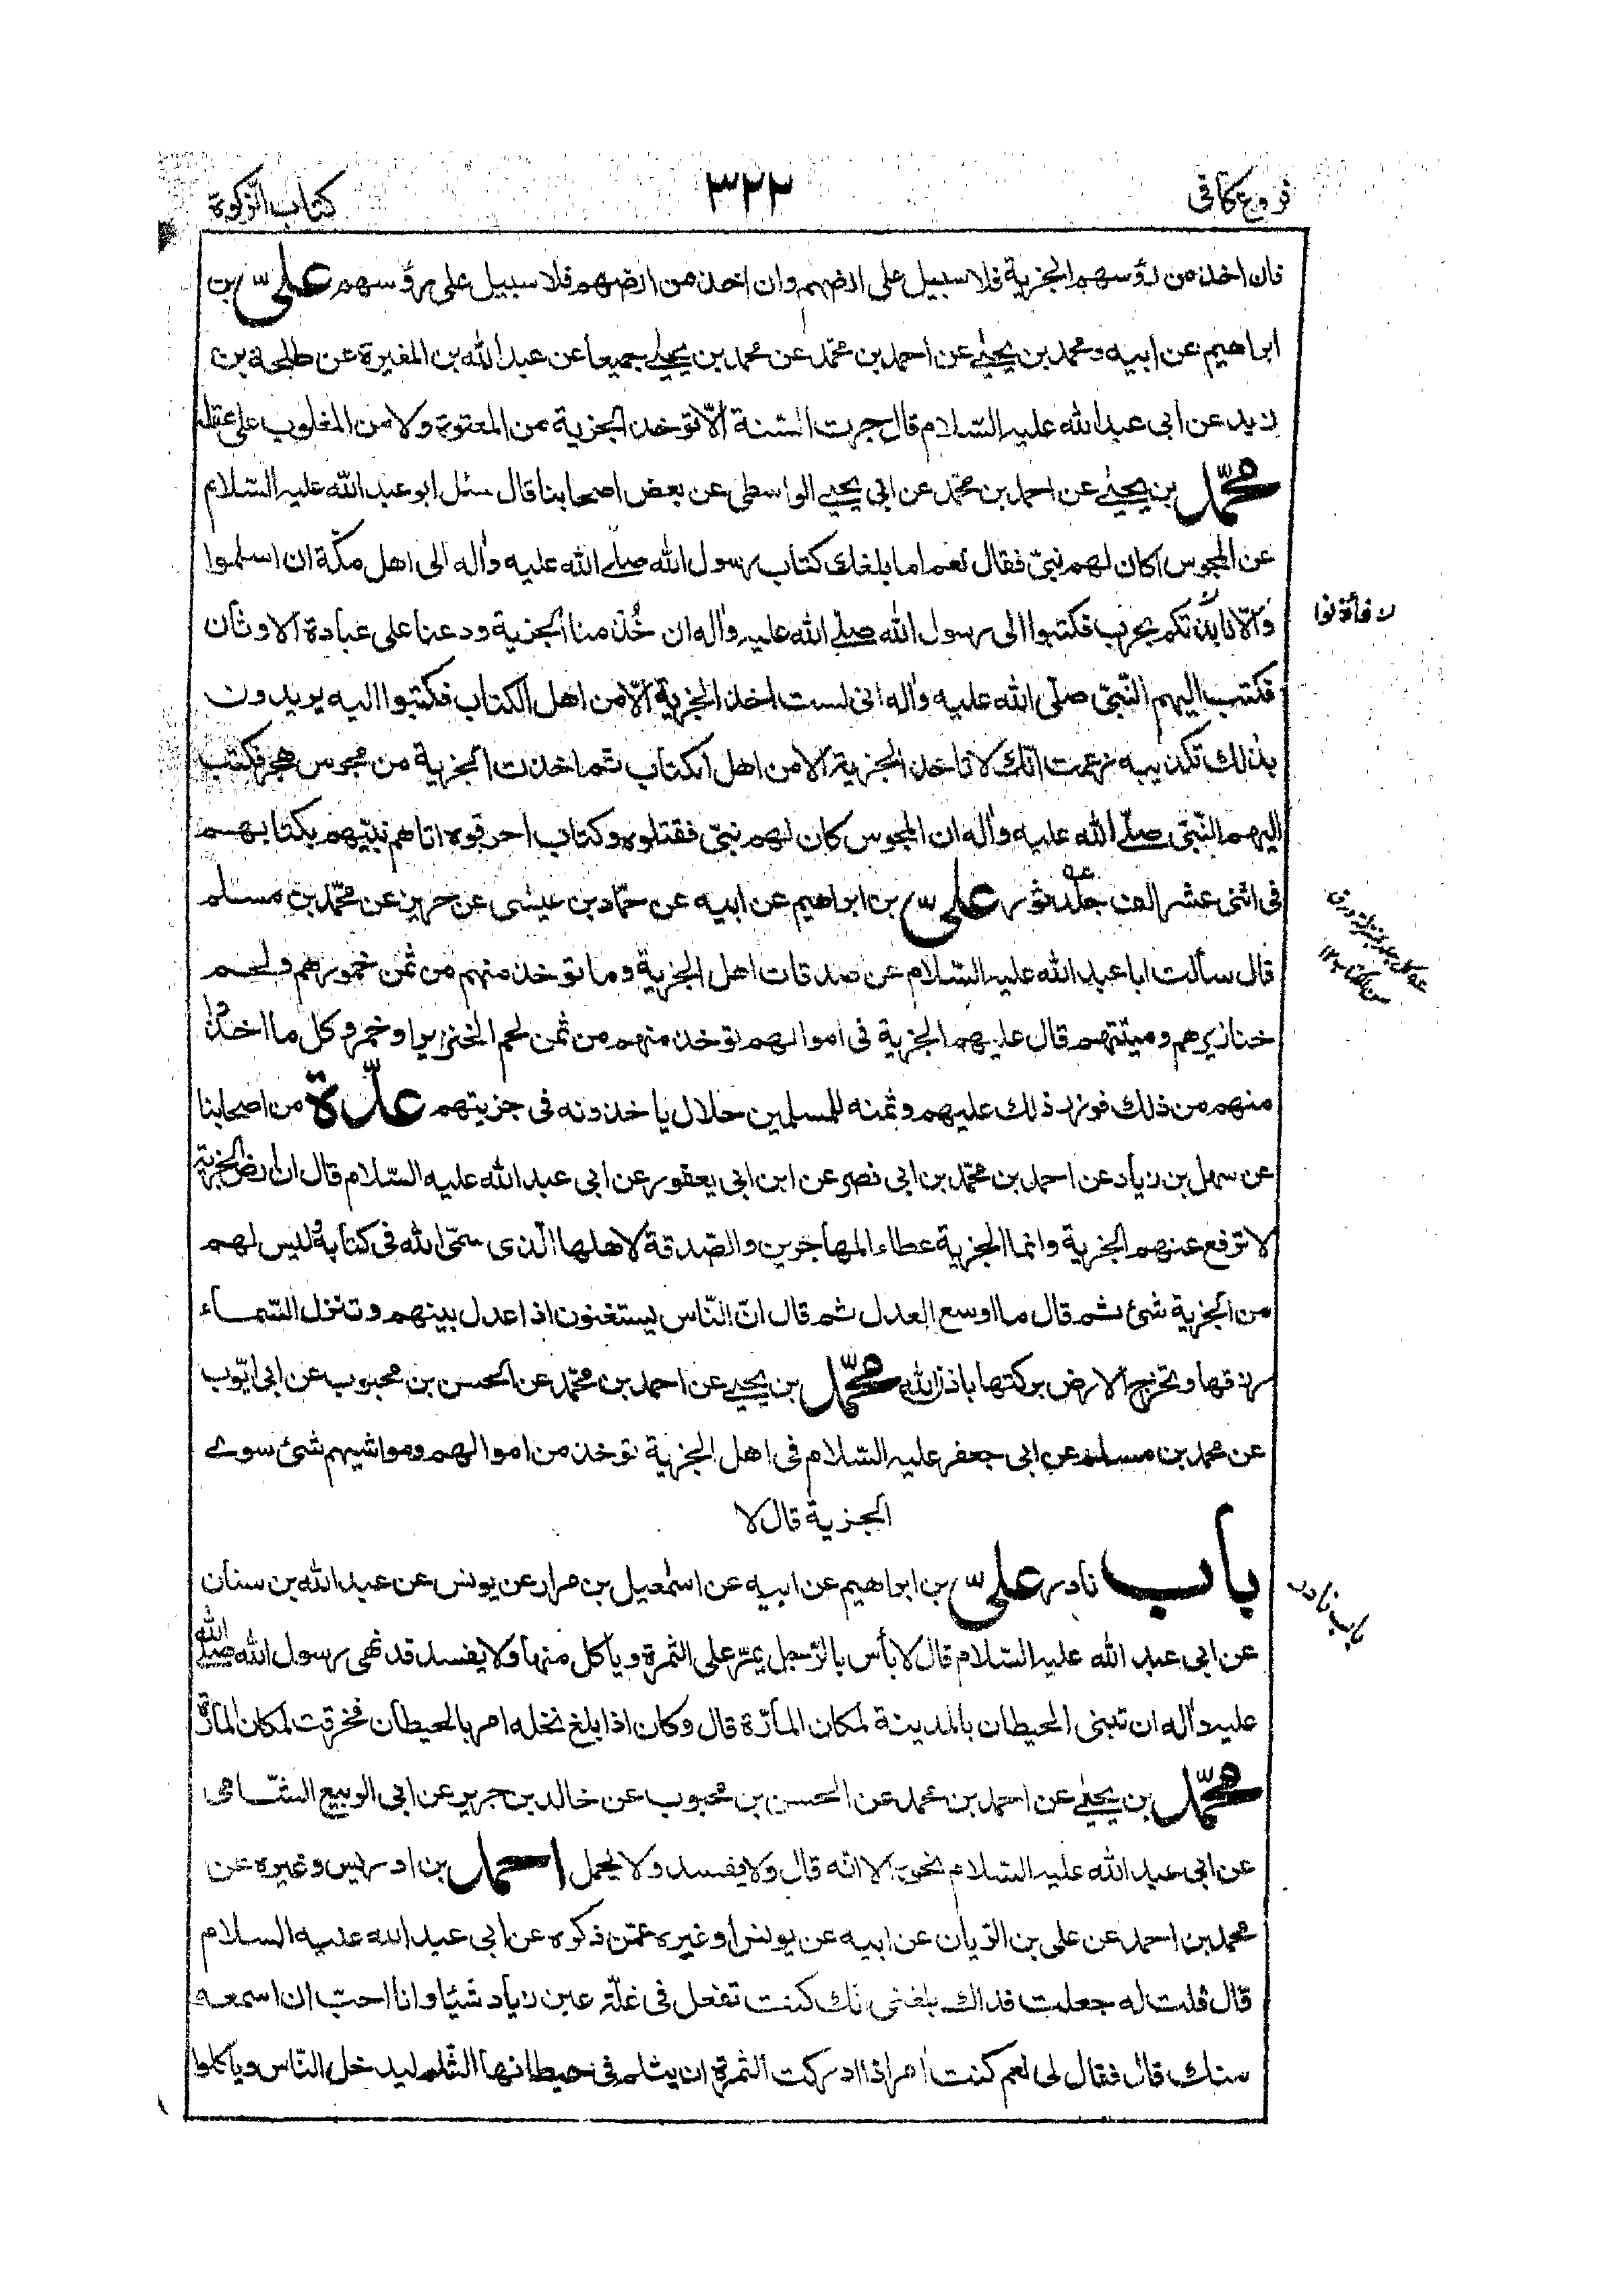 فروع كافی
٣٢٢
كتاب الزكوة
فان اخذ من رؤسهم الجزية فلا سبيل على ارضهم وان اخذ من ارضهم فلا سبيل على رؤسهم علیّ بن
ابراهيم عن ابيه ومحمد بن يحيٰی عن احمد بن محمّد عن محمد بن يحيٰی جميعا عن عبد الله بن المغيرة عن طلحة بن
زيد عن ابی عبد الله عليه السّلام قال جرت السّنة الّا تؤخذ الجزية من المعتوه ولا من المغلوب على عقله
محمّد بن يحيٰی عن احمد بن محمّد عن ابی يحيٰی الواسطی عن بعض اصحابنا قال سئل ابو عبد الله عليه السّلام
عن المجوس اكان لهم نبیّ فقال نعم اما بلغك كتاب رسول الله صلى الله عليه واٰله الى اهل مكّة ان اسلموا
والّا نابذتكم بحرب فكتبوا الى رسول الله صلى الله عليه واٰله ان خُذ منا الجزية ودعنا على عبادة الاوثان
فأذنوا
فكتب اليهم النّبیّ صلّى الله عليه واٰله انی لست اخذ الجزية الّا من اهل الكتاب فكتبوا اليه يريدون
بذلك تكذيبه زعمت انّك لا تاخذ الجزية الا من اهل الكتاب ثم اخذت الجزية من مجوس هجر فكتب
اليهم النّبیّ صلّى الله عليه واٰله ان المجوس كان لهم نبیّ فقتلوه وكتاب احرقوه اتاهم نبيّهم بكتابهم
فی اثنی عشر الف جلد ثور علیّ بن ابراهيم عن ابيه عن حمّاد بن عيسى عن حريز عن محمّد بن مسلم
قال سألت ابا عبد الله عليه السّلام عن صدقات اهل الجزية وما تؤخذ منهم من ثمن خمورهم ولحم
خنازيرهم وميتتهم قال عليهم الجزية فی اموالهم تؤخذ منهم من ثمن لحم الخنزير او خمر وكل ما اخذوا
منهم من ذلك فوزر ذلك عليهم وثمنه للمسلمين حلال ياخذونه فی جزيتهم عدّة من اصحابنا
عن سهل بن زياد عن احمد بن محمّد بن ابی نصر عن ابن ابی يعفور عن ابی عبد الله عليه السّلام قال ان ارض الجزية
لا ترفع عنهم الجزية وانما الجزية عطاء المهاجرين والصّدقة لاهلها الّذی سمّى الله فی كتابه ليس لهم
من الجزية شئ ثم قال ما اوسع العدل ثم قال انّ النّاس يستغنون اذا عدل بينهم وتنزل السّماء
رزقها وتخرج الارض بركتها باذن الله محمّد بن يحيی عن احمد بن محمّد عن الحسن بن محبوب عن ابی ايّوب
عن محمد بن مسلم عن ابی جعفر عليه السّلام فی اهل الجزية تؤخذ من اموالهم ومواشيهم شئ سوى
الجزية قال لا
باب نادر علیّ بن ابراهيم عن ابيه عن اسمٰعيل بن مرار عن يونس عن عبد الله بن سنان
باب نادر
عن ابی عبد الله عليه السّلام قال لا بأس بالرّجل يمرّ على الثمرة وياكل منها ولا يفسد قد نهى رسول الله صلى الله
عليه واٰله ان تبنى الحيطان بالمدينة لمكان المأرّة قال وكان اذا بلغ نخله امر بالحيطان فخرقت لمكان المارّة
محمّد بن يحيٰی عن احمد بن محمد عن الحسن بن محبوب عن خالد بن جرير عن ابی الربيع الشّامی
عن ابی عبد الله عليه السّلام نحوه الا انّه قال ولا يفسد ولا يحمل احمد بن ادريس وغيره عن
محمد بن احمد عن علی بن الرّيان عن ابيه عن يونس او غيره عمّن ذكره عن ابی عبد الله عليه السلام
قال قلت له جعلت فداك بلغنی انّك كنت تفعل فی غلّة عين زياد شيئا وانا احبّ ان اسمعه
منك قال فقال لی نعم كنت امر اذا ادركت الثمرة ان يثلم فی حيطانها الثّلم ليدخل النّاس وياكلوا